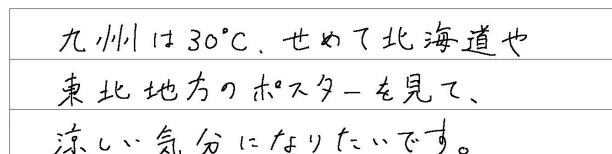 九州は30℃、せめて北海道や
東北地方のポスターを見て、
涼しい気分になりたいです。